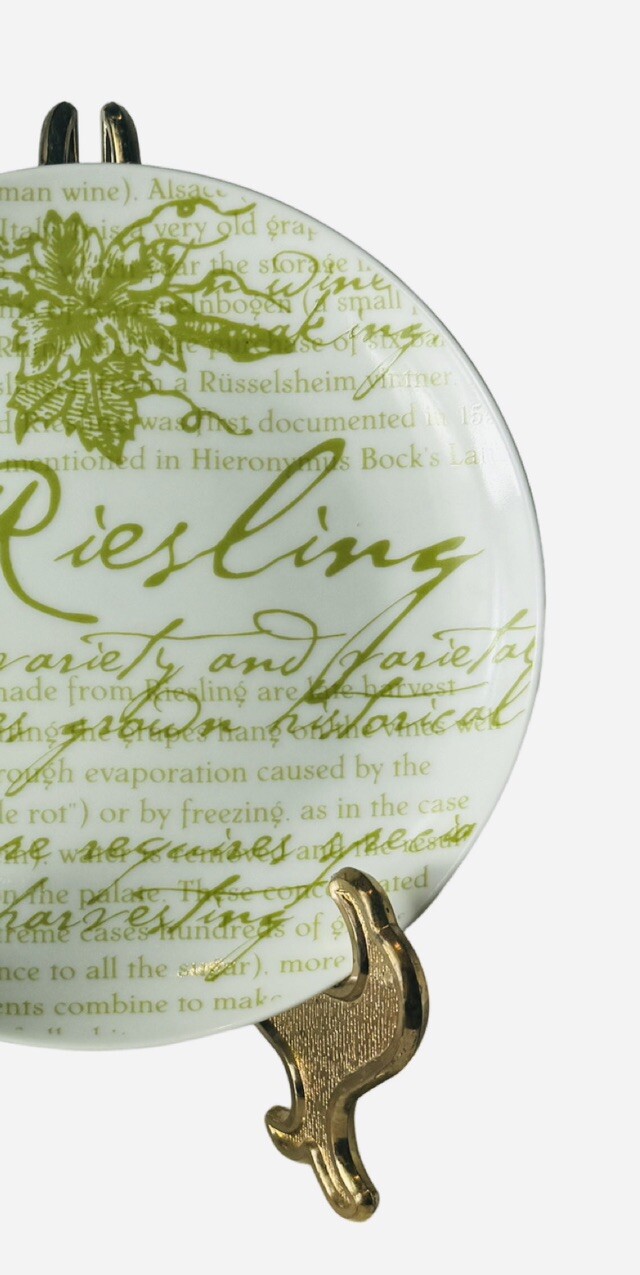 man wine). Alsac
Ital is a very old grap
ar the storage
in wine
lnbogen (a small
making
purchase of six bar
from a Rüsselsheim vintner
d Riesling was first documented in 15
mentioned in Hieronymus Bock's Lati
Riesling
variety and varietal
made from Riesling are late harvest
es grown historical
ling the grapes hang on the vines well
rough evaporation caused by the
le rot") or by freezing. as in the case
re requires specia
water is removed and the result
on the palate. These concentrated
harvesting
treme cases hundreds of g
nce to all the sugar). more
ents combine to make